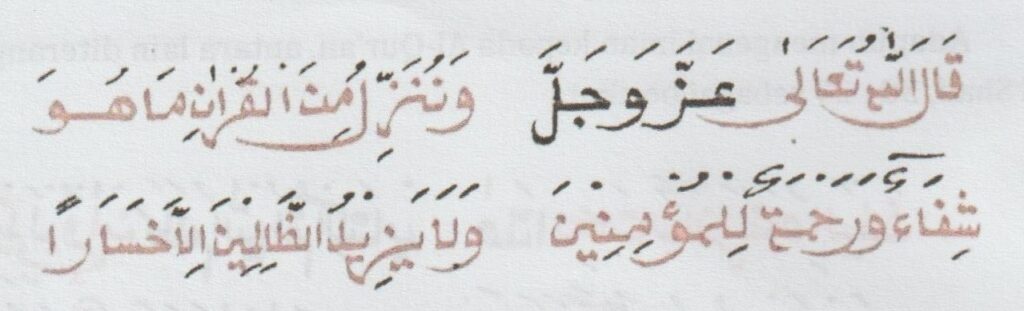 قَالَ اللهُ تَعَالَى عَزَّ وَجَلَّ وَنُنَزِّلُ مِنَ الْقُرْاٰنِ مَا هُوَ
شِفَاءٌ وَرَحْمَةٌ لِلْمُؤْمِنِيْنَ وَلَا يَزِيْدُ الظَّالِمِيْنَ اِلَّا خَسَارًا